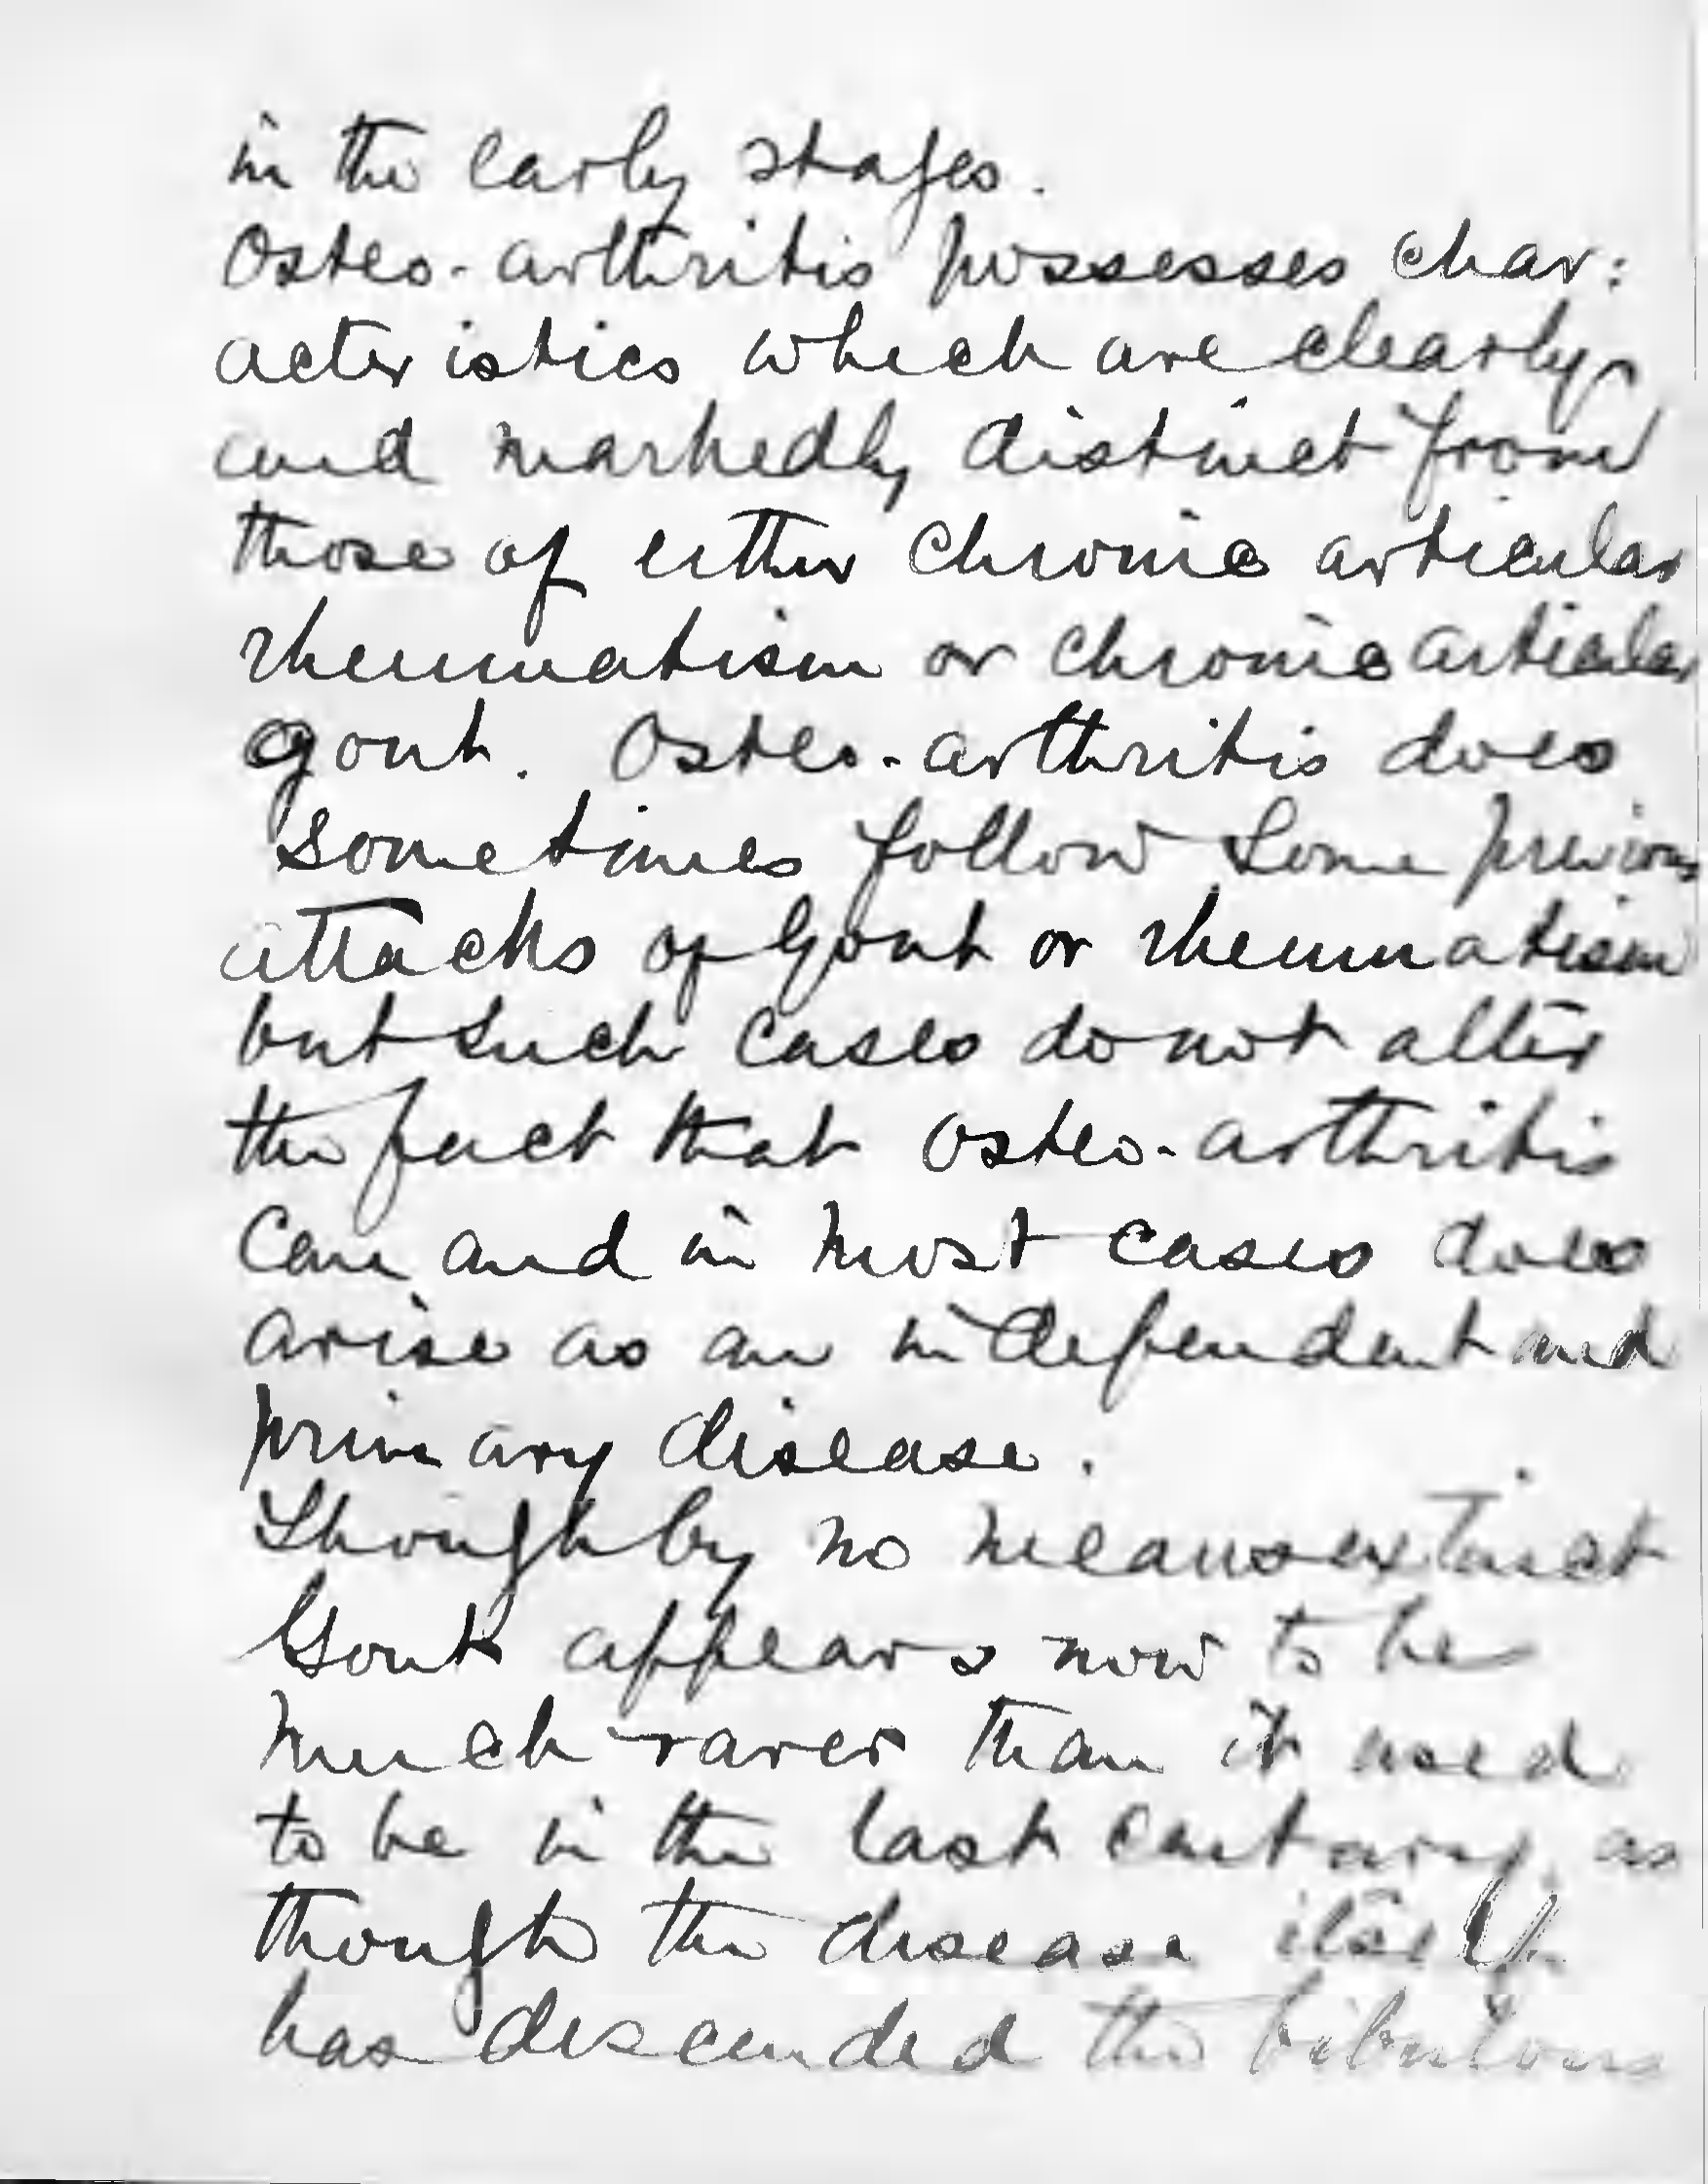 in the early stages.
Osteo-arthritis possesses char:
acteristics which are clearly
and markedly distinct from
those of either chronic articular
rheumatism or chronic articular
gout. Osteo-arthritis does
sometimes follow some previous
attacks of Gout or rheumatism
but such cases do not alter
the fact that Osteo-arthritis
can and in most cases does
arise as an independent and
primary disease.
Though by no means extinct
Gout appears now to be
much rarer than it used
to be in the last century, as
though the disease itself
has descended the bibulous